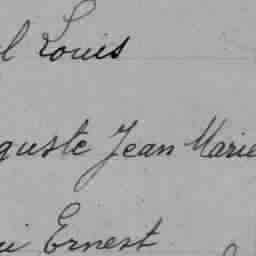 l Louis
guste Jean Marie
i Ernest